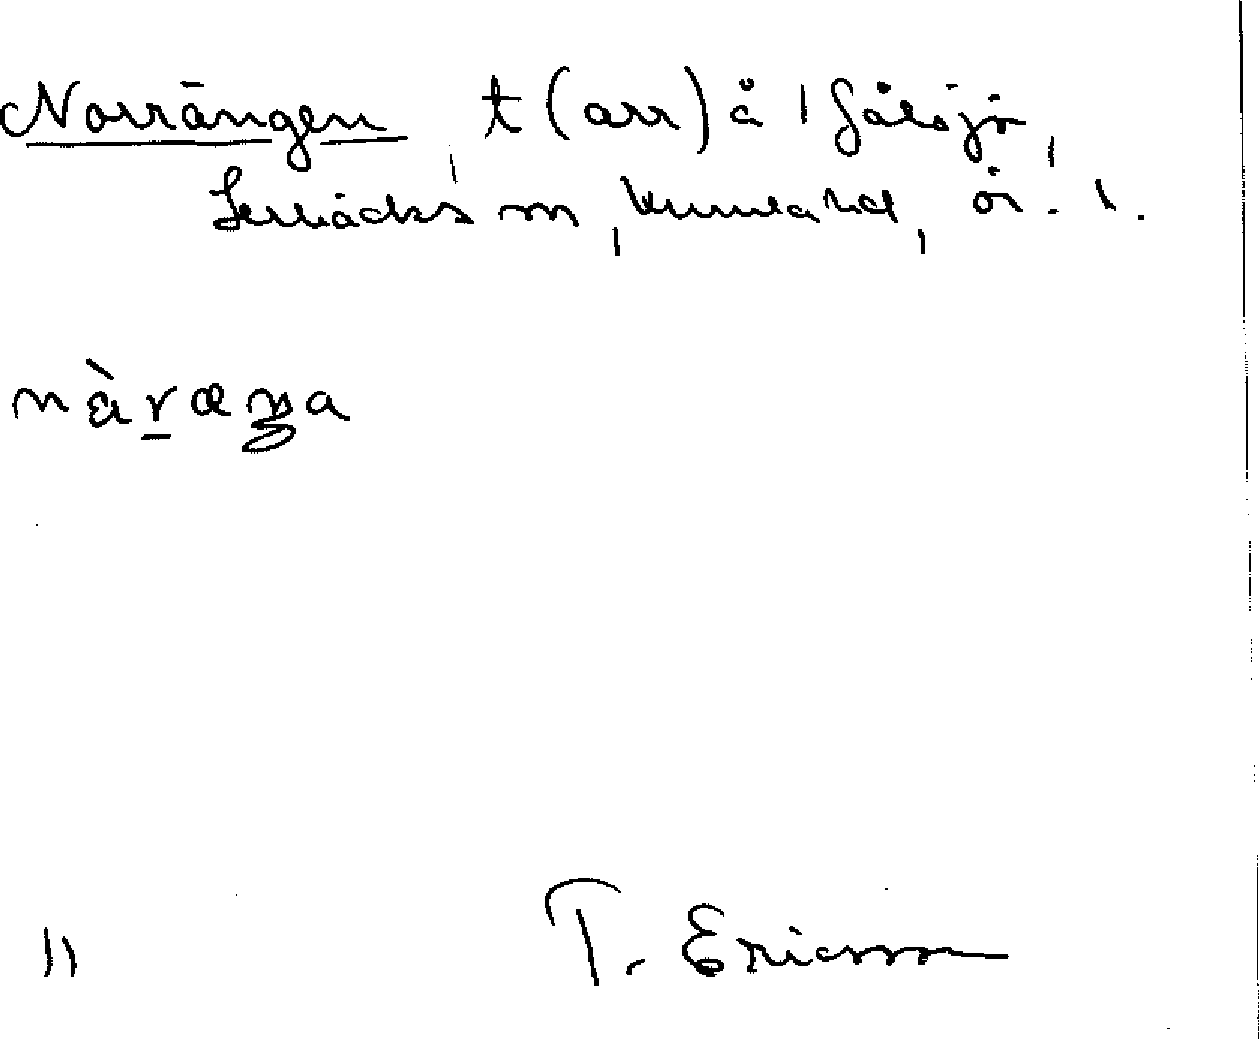 Norrängen, t (arr) å 1 Gålsjö,
Lerbäcks sn, Kumla hd, ör. l.
nàræŋa
11
T. Ericsson